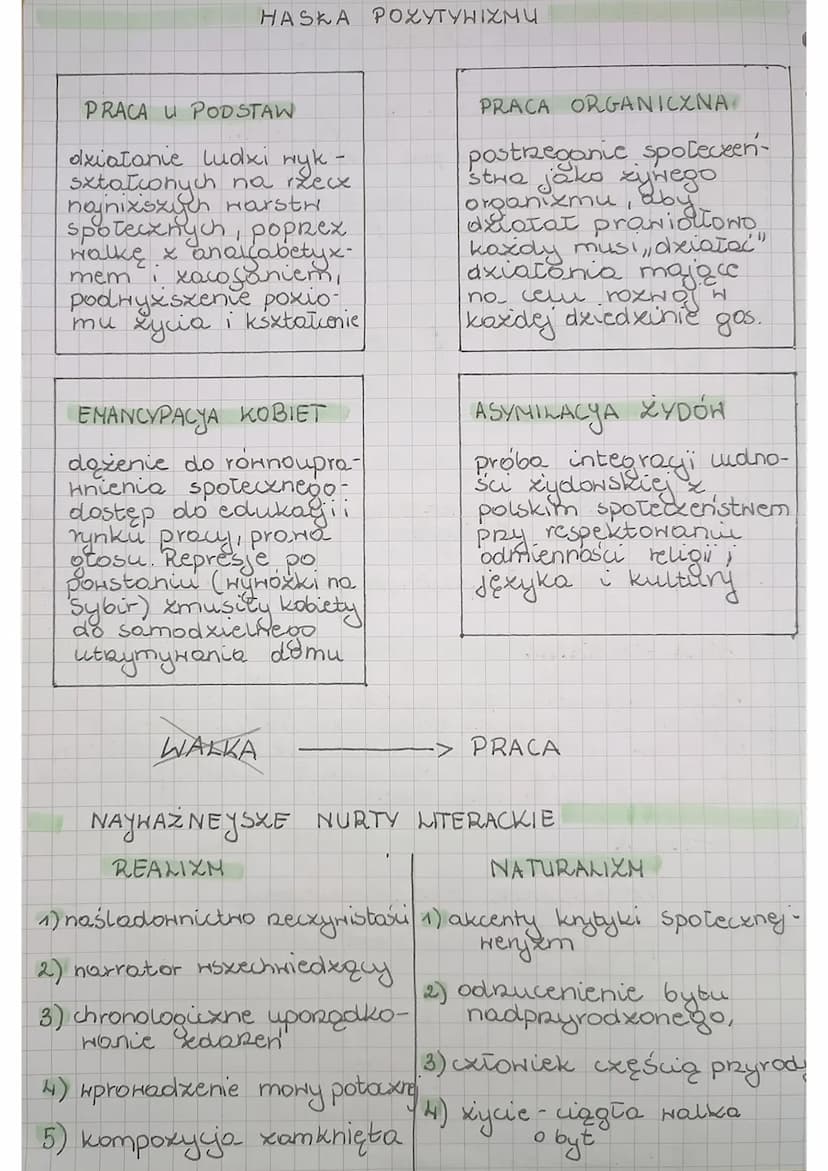 HASŁA POZYTYWIZMU
PRACA U PODSTAW
działanie ludzi wyk-
ształconych na rzecz
najniższych warstw
społecznych, poprzez
walkę z analfabetyz-
mem i zacofaniem,
podwyższenie pozio-
mu życia i kształcenie
PRACA ORGANICZNA
postrzeganie społeczeń-
stwa jako żywego
organizmu, aby
działał prawidłowo
każdy musi „działać"
działania mające
na celu rozwój w
każdej dziedzinie gos.
EMANCYPACJA KOBIET
dążenie do równoupra-
wnienia społecznego-
dostęp do edukacji i
rynku pracy, prawa
głosu. Represje po
powstaniu (wywózki na
Sybir) zmusiły kobiety
do samodzielnego
utrzymywania domu
ASYMILACJA ŻYDÓW
próba integracji ludno-
ści żydowskiej z
polskim społeczeństwem
przy respektowaniu
odmienności religii,
języka i kultury
WALKA → PRACA
NAJWAŻNIEJSZE NURTY LITERACKIE
REALIZM
1) naśladownictwo rzeczywistości
2) narrator wszechwiedzący
3) chronologiczne uporządko-
wanie zdarzeń
4) wprowadzenie mowy potocznej
5) kompozycja zamknięta
NATURALIZM
1) akcenty krytyki społecznej-
weryzm
2) odrzucenienie bytu
nadprzyrodzonego,
3) człowiek częścią przyrody
4) życie - ciągła walka
o byt